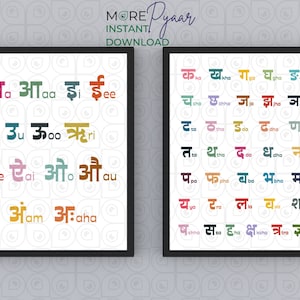 MORE Pyaar
INSTANT
DOWNLOAD
आ aa इ i ई ee
उ u ऊ oo ऋ ri
ऐ ai ओ o औ au
अं am अः aha
क ka ख kha ग ga घ gha
च cha छ chha ज ja झ jha
ट ta ठ tha ड da ढ dha
त ta थ tha द da ध dha न
प pa फ pha ब ba भ bha म
य ya र ra ल la व va
ष sha स sa ह ha क्ष ksha त्र tra